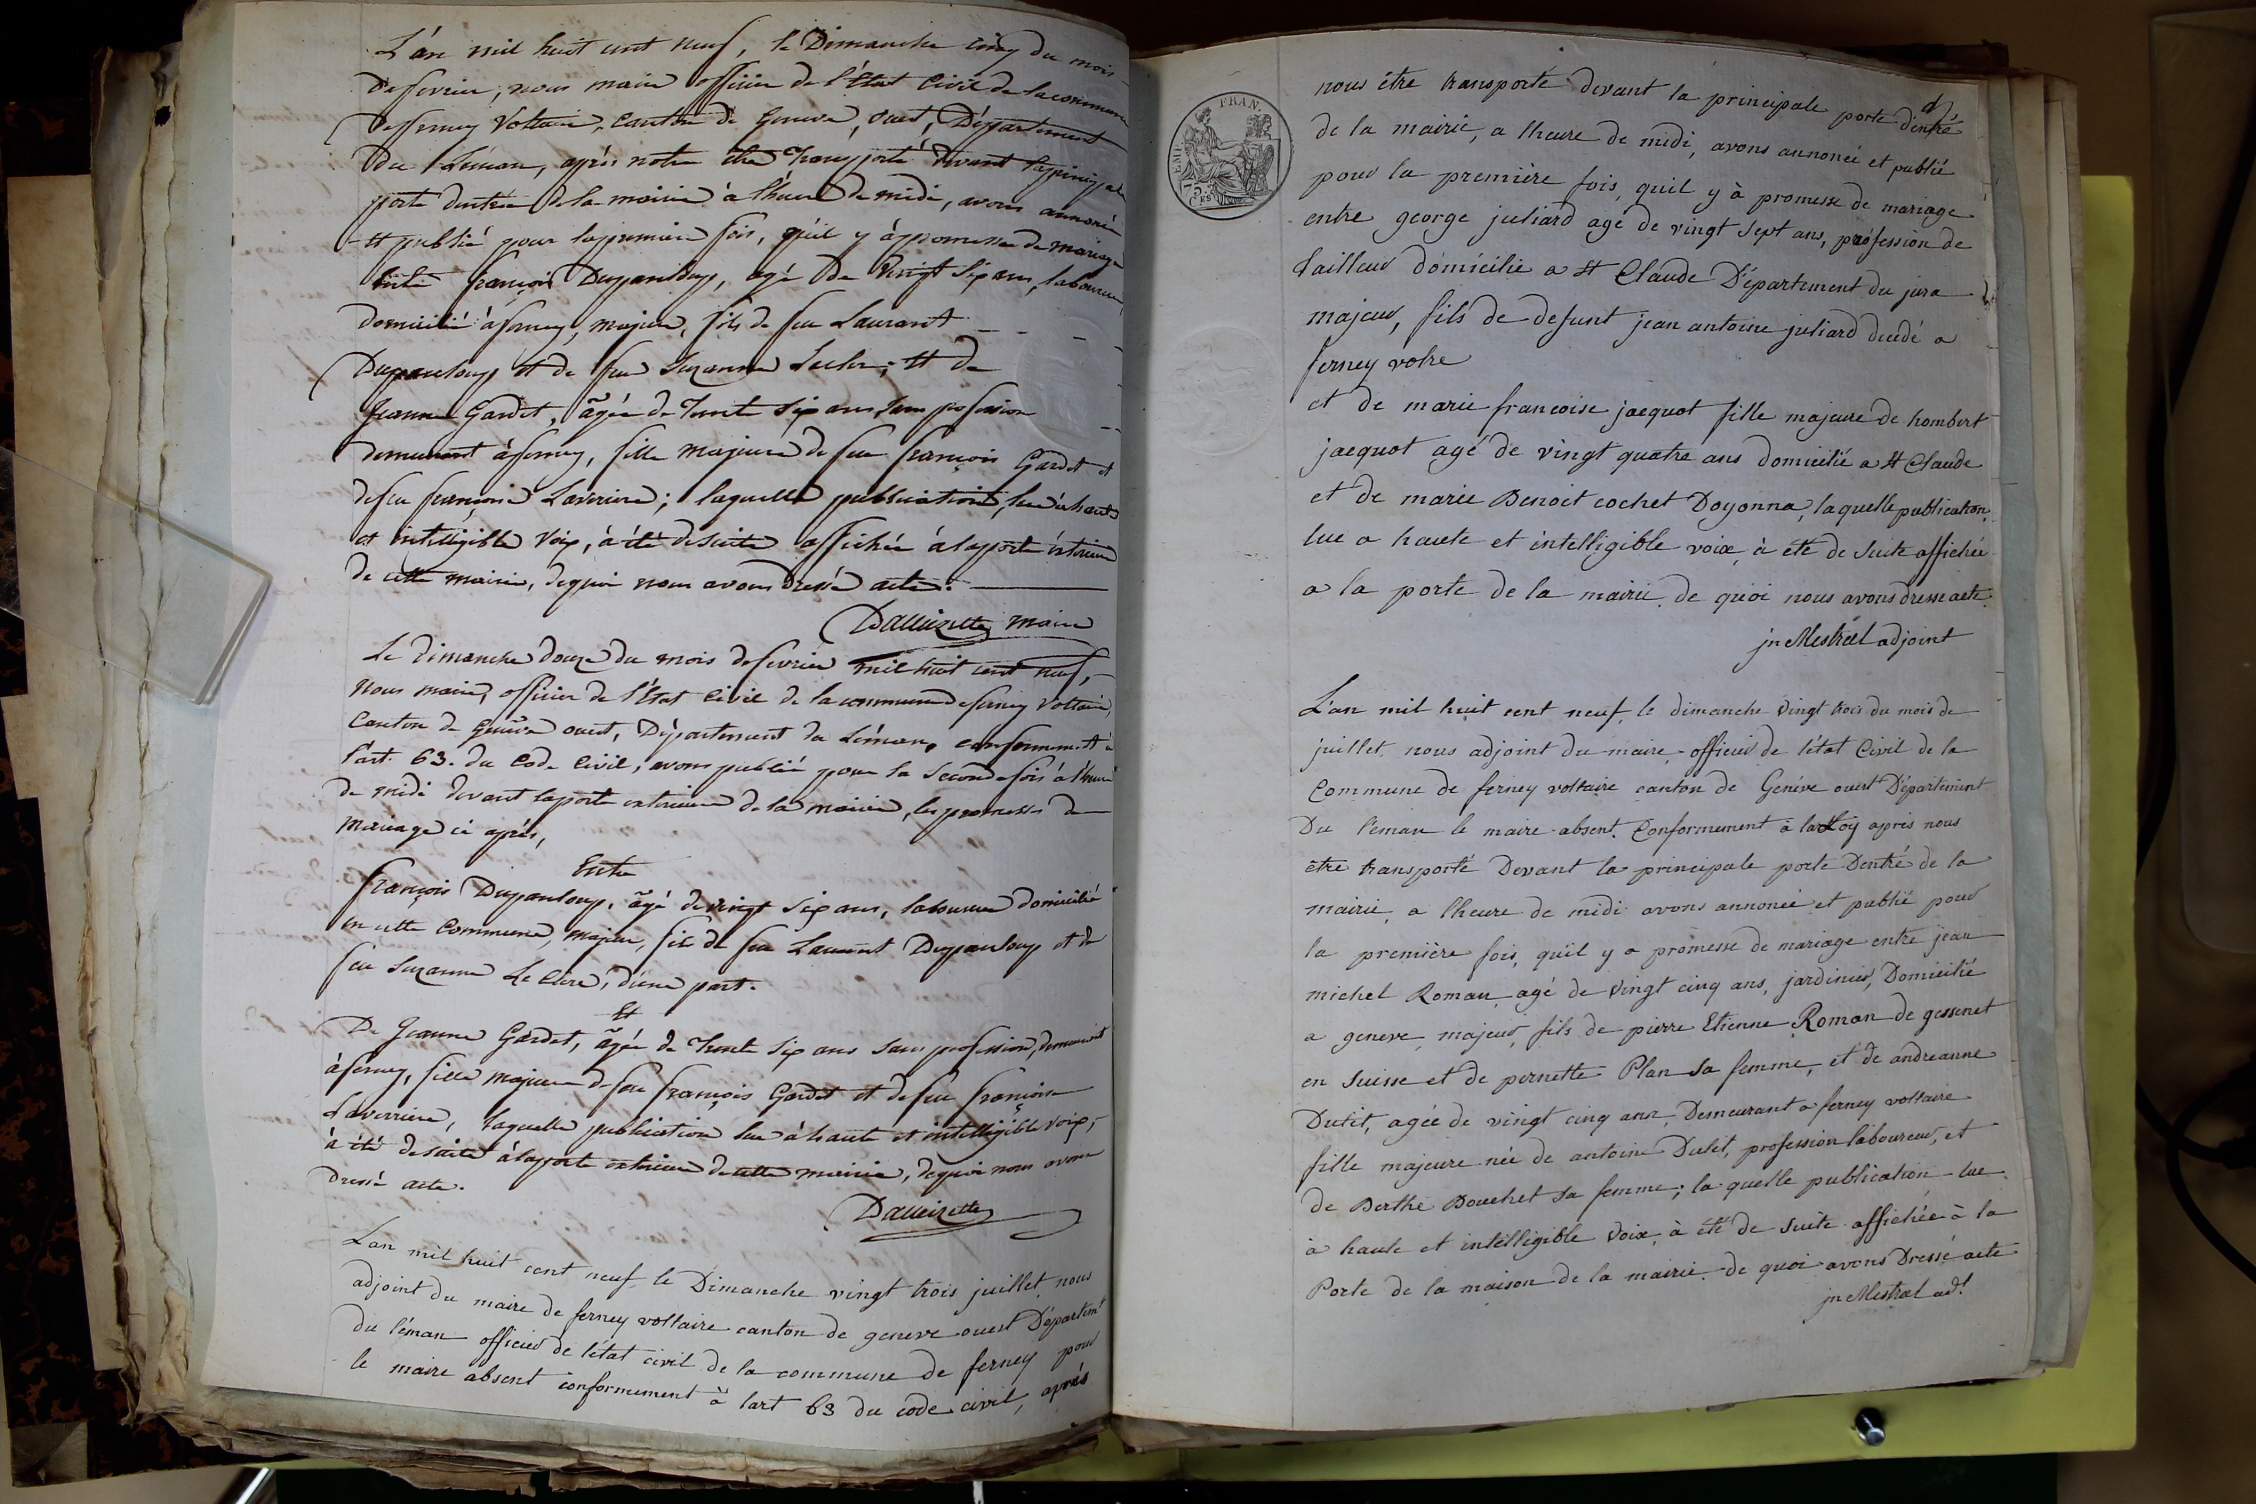 L'an mil huit cent neuf, le Dimanche cinq du mois
de fevrier, nous maire officier de l'Etat Civil de la commune
de ferney Voltaire, canton de Geneve, ouest, Département
du Léman, après notre être transporté devant la principale
porte d'entrée de la mairie à l'heure de midi, avons annoncé
et publié pour la premiere fois, qu'il y à promesse de mariage
entre françois Dupanloup, agé de vingt six ans, laboureur
domicilié à ferney, majeur, fils de feu Laurant
Dupanloup et de feue Suzanne Leclerc; et de
Jeanne Gardet, âgée de trente six ans sans profession
demeurant à ferney, fille majeure de feu françois Gardet et
de feu françoise Laverriere; laquelle publication, lue à haute
et intelligible voix, à été de suite affichée à la porte extérieure
de cette mairie, de quoi nous avons dressé acte.
Dallizette maire
Le Dimanche douze du mois de fevrier mil huit cent neuf,
Nous maire, officier de l'Etat Civil de la commune de ferney Voltaire,
Canton de Genêve ouest, Département du Léman, conformement à
l'art. 63. du Code Civil, avons publié pour la seconde fois à l'heure
de midi devant la porte exterieure de la mairie, les promesses de
mariage ci après,
Entre
françois Dupanloup, âgé de vingt six ans, laboureur domicilié
en cette Commune, majeur, fils de feu Laurent Dupanloup et de
feu Suzanne Le Clerc, d'une part.
Et
De Jeanne Gardet, âgée de trente six ans sans profession, demeurant
à ferney, fille majeure de feu françois Gardet et de feu françoise
Laverriere, laquelle publication lue à haute et intelligible voix,
à été de suite à la porte exterieure de cette mairie, de quoi nous avons
dressé acte.
Lan mil huit cent neuf le Dimanche vingt trois juillet, nous
adjoint du maire de ferney voltaire canton de geneve ouest Départemt
du léman officier de létat civil de la commune de ferney pour
le maire absent conformement à lart 63 du code civil, après
FRAN.
nous être transporté devant la principale porte d'entré
de la mairie, a lheure de midi, avons annoncé et publié
pour la première fois, quil y à promesse de mariage
entre george juliard agé de vingt sept ans, profession de
tailleur domicilié a St Claude Département du jura
majeur, fils de defunt jean antoine juliard decedé a
ferney volre
et de marie francoise jacquot fille majeure de hombert
jacquot agé de vingt quatre ans domicilié a St Claude
et de marie Benoit cochet Doyonna, laquelle publication,
lue a haute et intelligible voix, à été de suite affichée
a la porte de la mairie. de quoi nous avons dresse acte.
jn Mestral adjoint
L'an mil huit cent neuf, le dimanche vingt trois du mois de
juillet, nous adjoint du maire, officier de létat Civil de la
Commune de ferney voltaire canton de Genéve ouest Département
Du léman le maire absent. Conformement à la Loy après nous
être transporté Devant la principale porte Dentré de la
mairie, a lheure de midi avons annoncé et publié pour
la première fois, quil y a promesse de mariage entre jean
michel Roman, agé de vingt cinq ans, jardinier, Domicilié
a geneve, majeur, fils de pierre Etienne Roman de gessenet
en Suisse et de pernette Plan sa femme, et de andreanne
Dutit, agée de vingt cinq ans, Demeurant a ferney voltaire
fille majeure née de antoine Dutit, profession laboureur, et
de Berthe Bouchet sa femme; la quelle publication lue
à haute et intélligible Voix, à été de suite affichée à la
Porte de la maison de la mairie. de quoi avons Dressé acte
jn Mestral adt